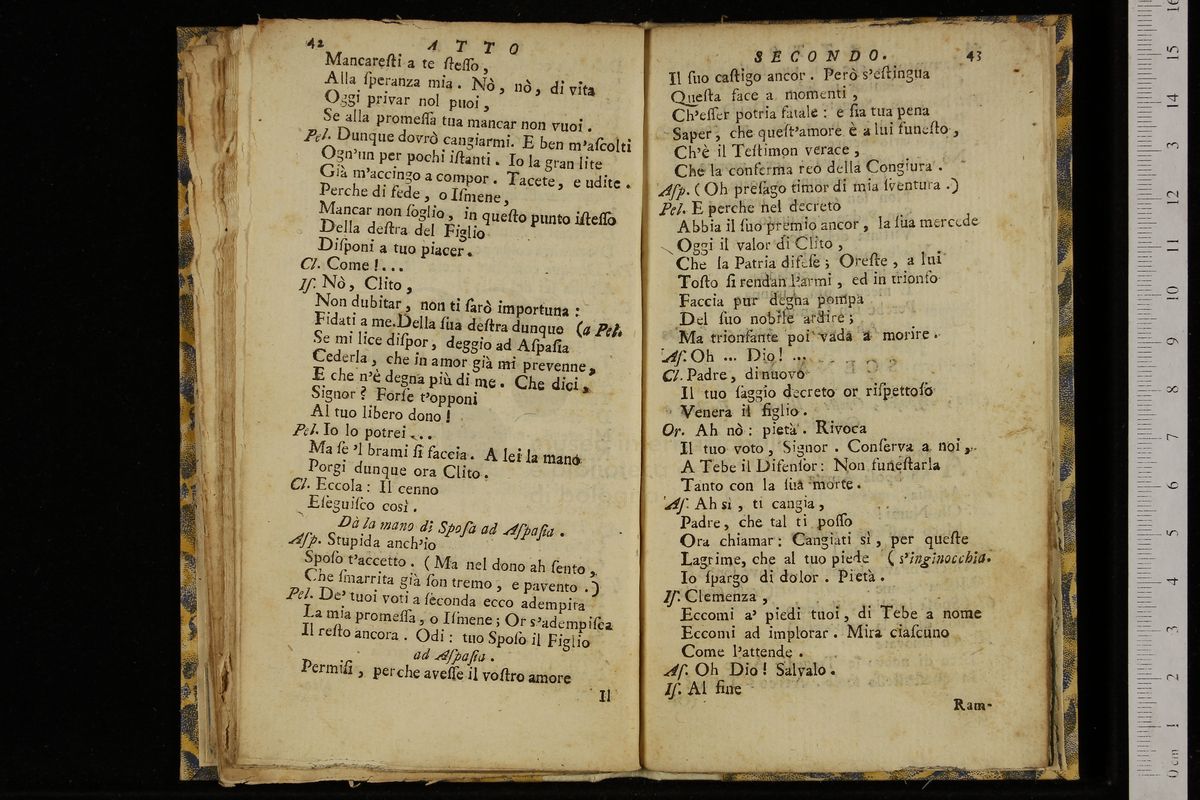 42 ATTO
Mancareſti a te ſteſſo,
Alla ſperanza mia. Nò, nò, di vita
Oggi privar nol puoi,
Se alla promeſſa tua mancar non vuoi.
Pel. Dunque dovrò cangiarmi. E ben m'aſcolti
Ogn'un per pochi iſtanti. Io la gran lite
Già m'accingo a compor. Tacete, e udite.
Perche di fede, o Iſmene,
Mancar non ſoglio, in queſto punto iſteſſo
Della deſtra del Figlio
Diſponi a tuo piacer.
Cl. Come!...
Iſ. Nò, Clito,
Non dubitar, non ti ſarò importuna:
Fidati a me. Della ſua deſtra dunque (a Pel.
Se mi lice diſpor, deggio ad Aſpaſia
Cederla, che in amor già mi prevenne,
E che n'è degna più di me. Che dici,
Signor? Forſe t'opponi
Al tuo libero dono!
Pel. Io lo potrei...
Ma ſe 'l brami ſi faccia. A lei la mano
Porgi dunque ora Clito.
Cl. Eccola: Il cenno
Eſeguiſco così.
Dà la mano di Spoſa ad Aſpaſia.
Aſp. Stupida anch'io
Spoſo t'accetto. (Ma nel dono ah ſento,
Che ſmarrita già ſon tremo, e pavento.)
Pel. De' tuoi voti a ſeconda ecco adempita
La mia promeſſa, o Iſmene; Or s'adempiſca
Il reſto ancora. Odi: tuo Spoſo il Figlio
ad Aſpaſia.
Permiſi, perche aveſſe il voſtro amore
Il
SECONDO. 43
Il ſuo caſtigo ancor. Però s'eſtingua
Queſta face a momenti,
Ch'eſſer potria fatale: e ſia tua pena
Saper, che queſt'amore è a lui funeſto,
Ch'è il Teſtimon verace,
Che la conferma reo della Congiura.
Aſp. (Oh preſago timor di mia ſventura.)
Pel. E perche nel decreto
Abbia il ſuo premio ancor, la ſua mercede
Oggi il valor di Clito,
Che la Patria difeſe; Oreſte, a lui
Toſto ſi rendan l'armi, ed in trionfo
Faccia pur degna pompa
Del ſuo nobile ardire;
Ma trionfante poi vada a morire.
Aſ. Oh ... Dio! ...
Cl. Padre, di nuovo
Il tuo ſaggio decreto or riſpettoſo
Venera il figlio.
Or. Ah nò: pietà. Rivoca
Il tuo voto, Signor. Conſerva a noi,
A Tebe il Difenſor: Non funeſtarla
Tanto con la ſua morte.
Aſ. Ah sì, ti cangia,
Padre, che tal ti poſſo
Ora chiamar: Cangiati sì, per queſte
Lagrime, che al tuo piede (s'inginocchia.
Io ſpargo di dolor. Pietà.
Iſ. Clemenza,
Eccomi a' piedi tuoi, di Tebe a nome
Eccomi ad implorar. Mira ciaſcuno
Come l'attende.
Aſ. Oh Dio! Salvalo.
Iſ. Al fine
Ram-
0 cm 1 2 3 4 5 6 7 8 9 10 11 12 13 14 15 16